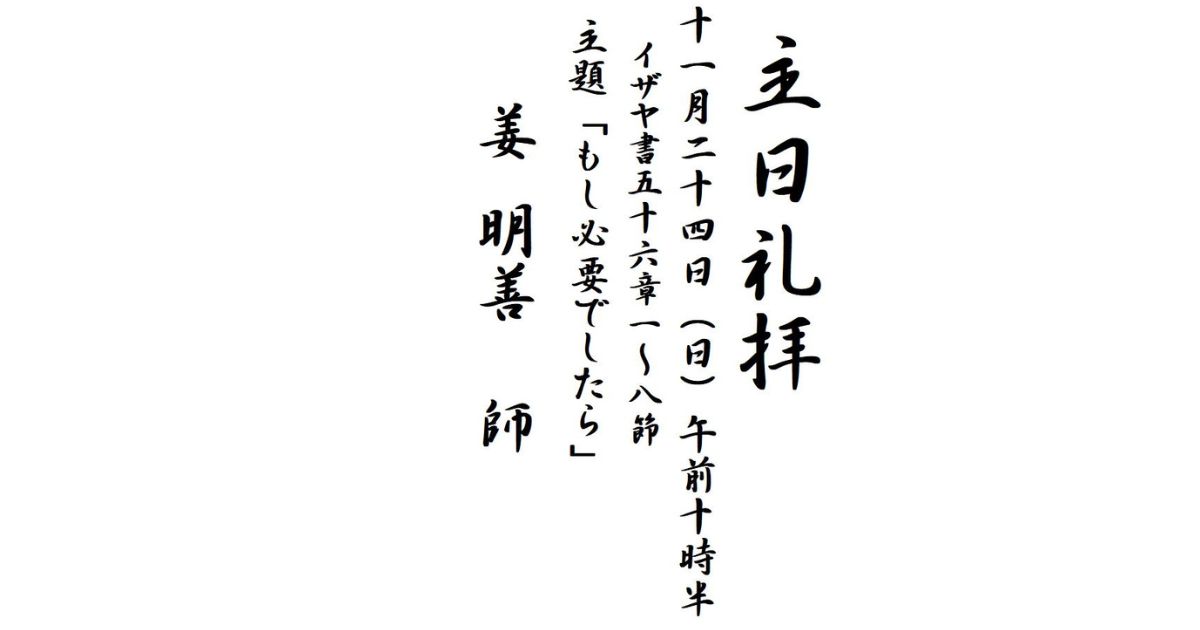 主日礼拝
十一月二十四日（日）午前十時半
イザヤ書五十六章一～八節
主題「もし必要でしたら」
姜 明善 師